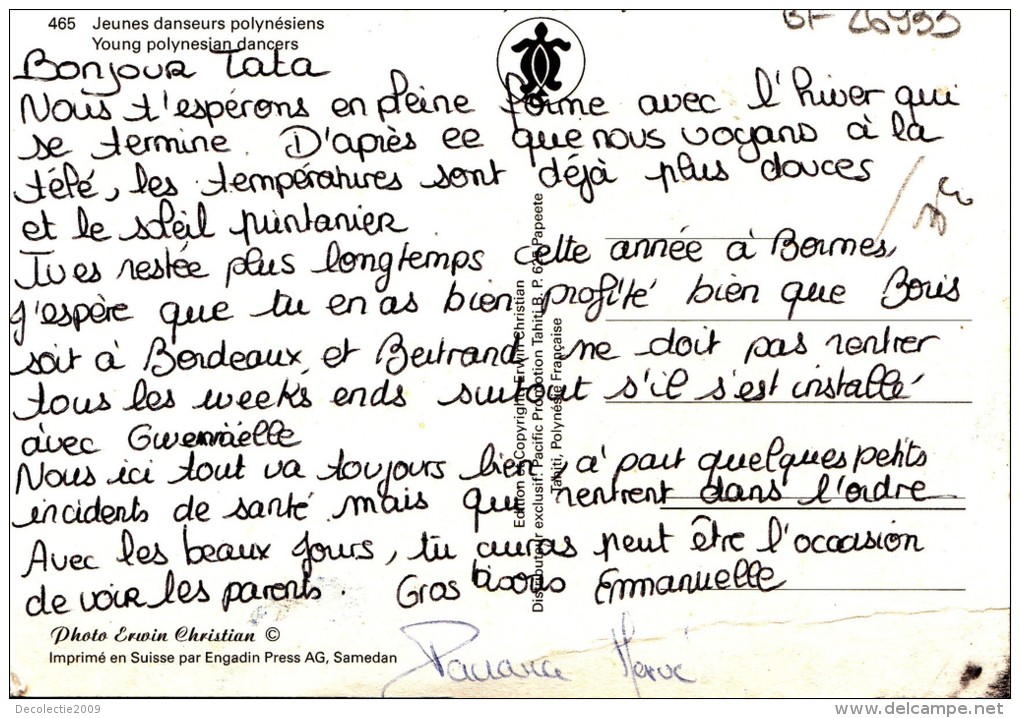 465 Jeunes danseurs polynésiens
Young polynesian dancers
BF 26933
Bonjour Tata
Nous t'espérons en pleine forme avec l'hiver qui
se termine. D'après ce que nous voyons à la
télé, les températures sont déjà plus douces
et le soleil printanier.
Tu es restée plus longtemps cette année à Bormes,
j'espère que tu en as bien profité bien que Boris
soit à Bordeaux, et Bertrand ne doit pas rentrer
tous les weeks ends surtout s'il s'est installé
avec Gwenaëlle
Nous ici tout va toujours bien, à part quelques petits
incidents de santé mais qui rentrent dans l'ordre
Avec les beaux jours, tu auras peut être l'occasion
de voir les parents. Gros bisous Emmanuelle
Hervé
Edition et Copyright: Erwin Christian
Distributeur exclusif: Pacific Promotion Tahiti B. P. 625 Papeete
Tahiti, Polynésie Française
Photo Erwin Christian ©
Imprimé en Suisse par Engadin Press AG, Samedan
Decolectie2009
delcampe.net